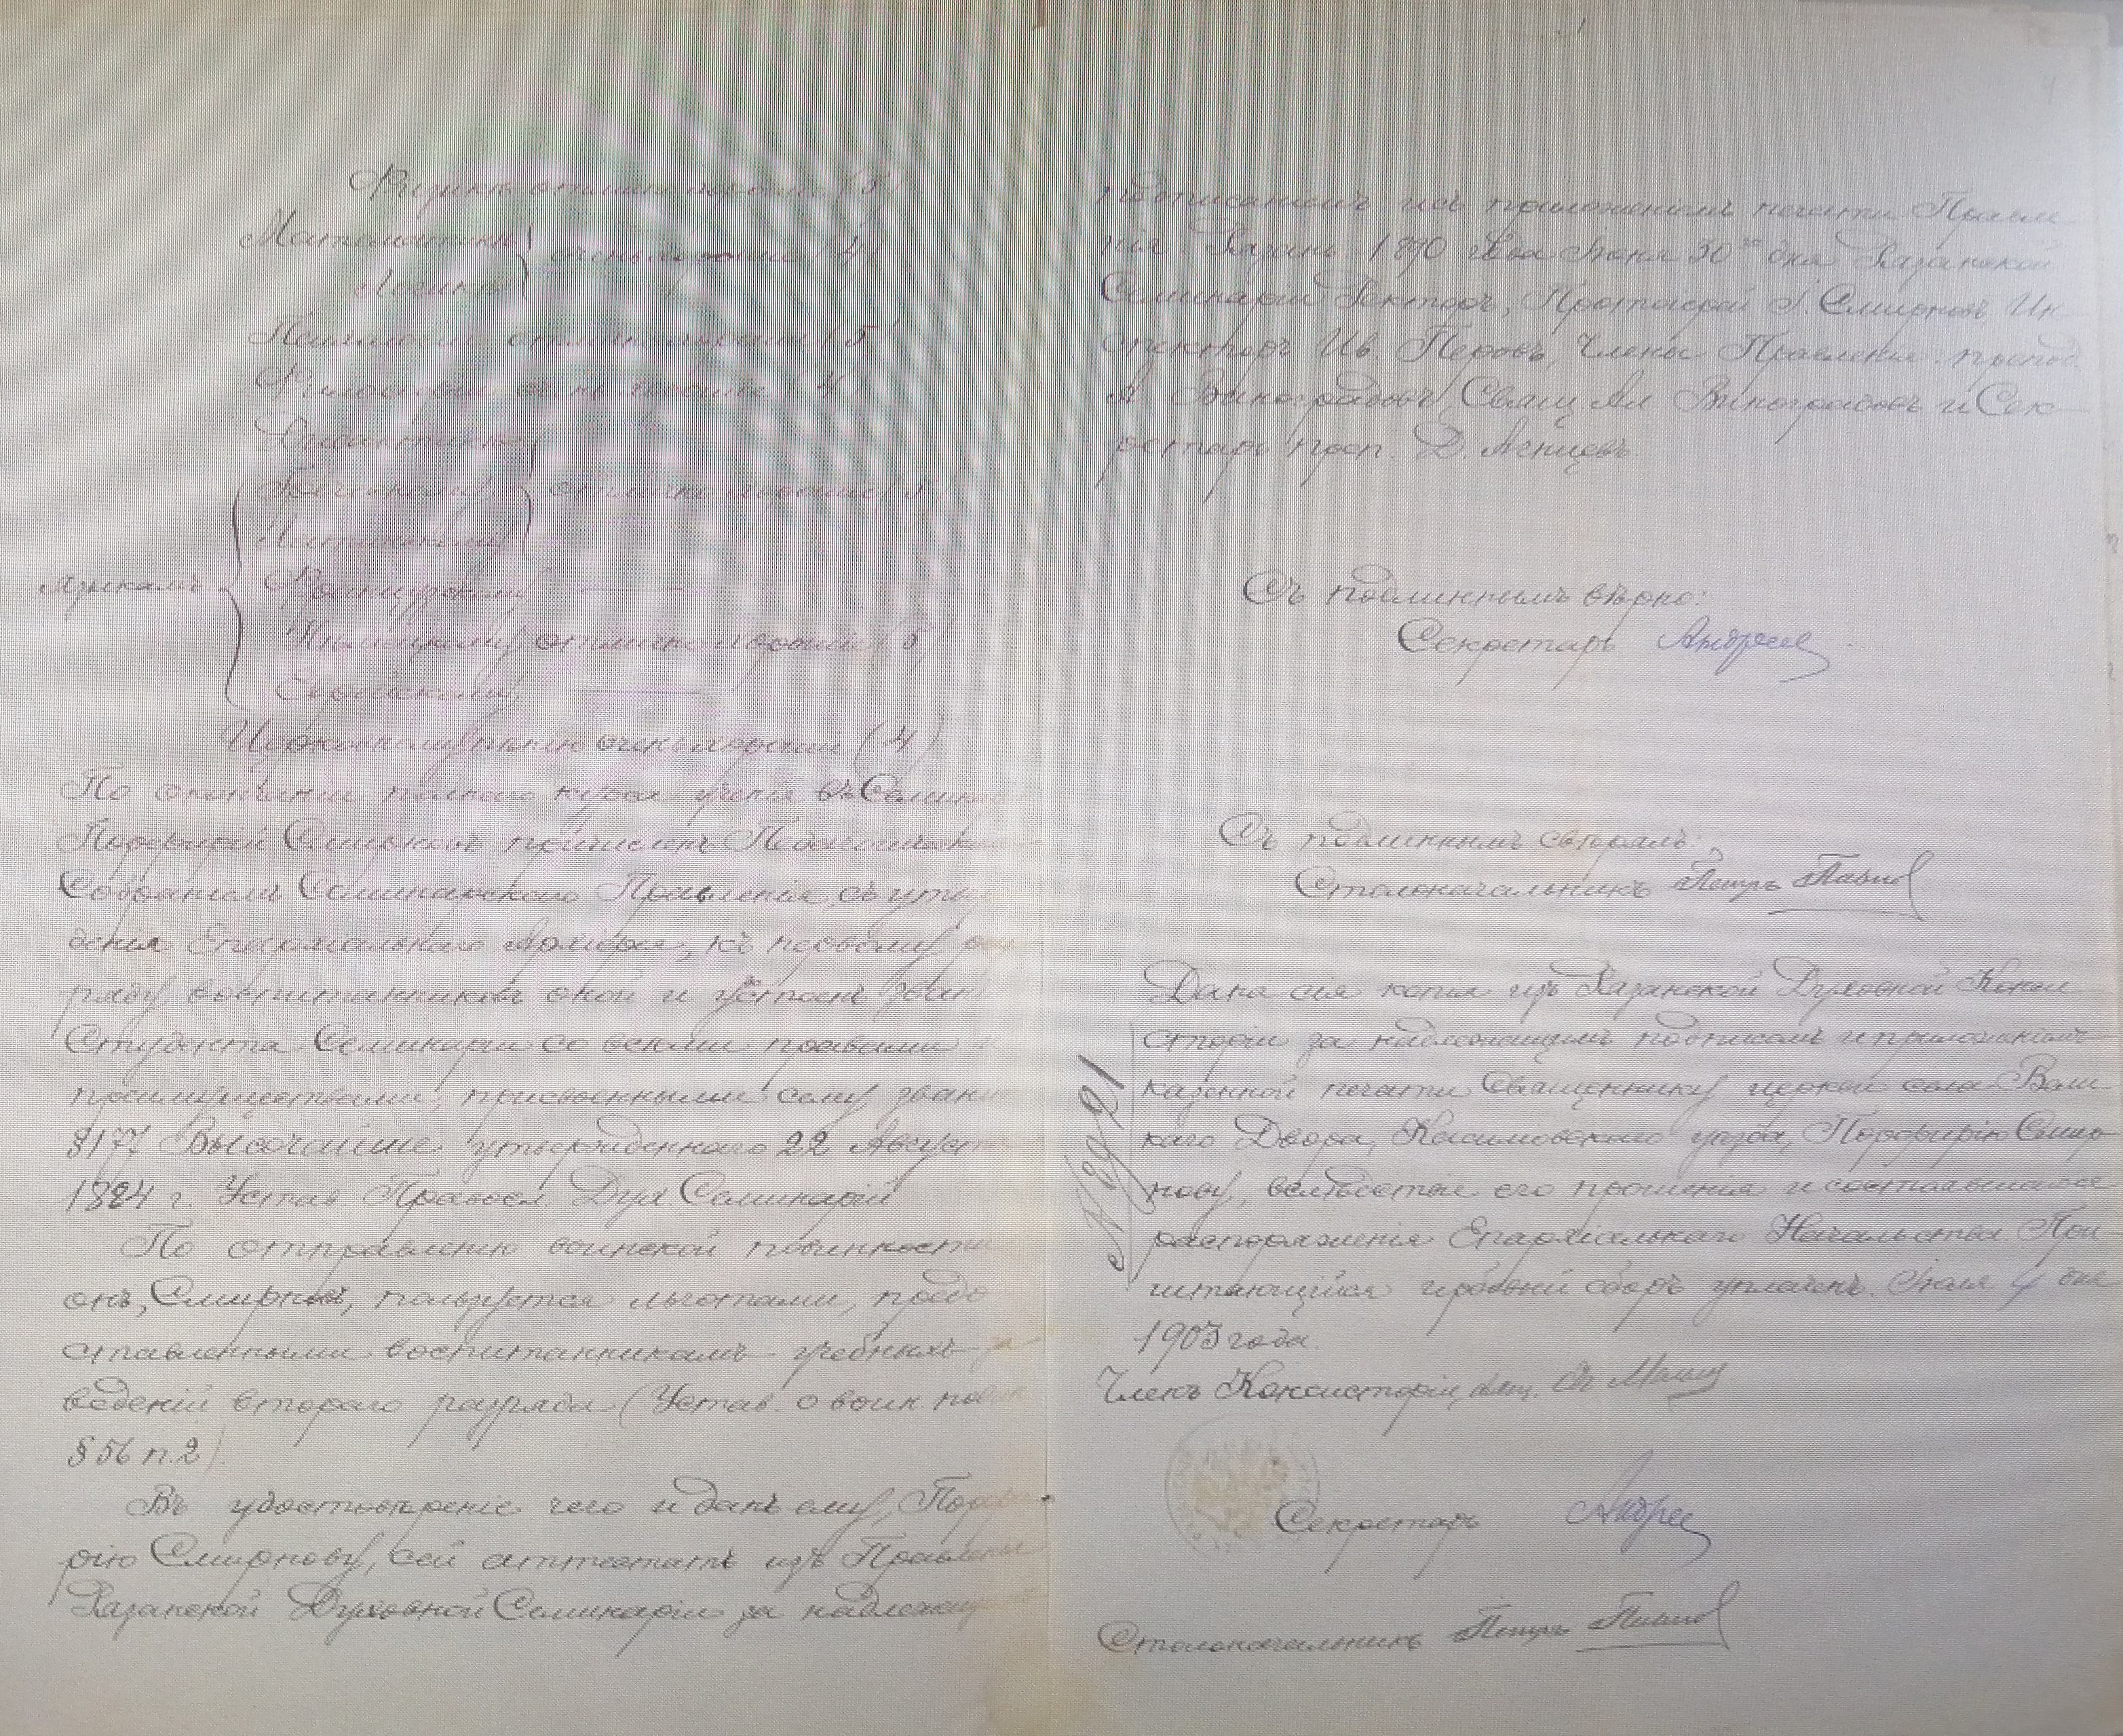 Физикѣ отлично хорошіе (5)
Математикѣ
Логикѣ
очень хорошіе (4)
отлично хорошіе (5)
Философіи очень хорошіе (4)
Дидактикѣ
Греческому
Латинскому
отлично хорошіе (5)
языкамъ
Французскому —
Нѣмецкому отлично хорошіе (5)
Еврейскому —
Церковному пѣнію очень хорошіе (4)
По окончаніи полнаго курса ученія въ Семинаріи
Порфирій Смирновъ причисленъ Педагогическимъ
Собраніемъ Семинарскаго Правленія, съ утвер
денія Епархіальнаго Архіерея, къ первому раз
ряду воспитанниковъ оной и удостоенъ званія
Студента Семинаріи со всѣми правами и
преимуществами, присвоенными сему званію
§177 Высочайше утвержденнаго 22 Августа
1884 г. Устав. Правосл. Дух. Семинарій
По отправленію воинской повинности
онъ, Смирновъ, пользуется льготами, предо
ставленными воспитанникамъ учебныхъ за
веденій втораго разряда (Устав. о воин. повин
§56 п.2).
Въ удостовѣреніе чего и данъ ему, Порфи
рію Смирнову, сей аттестатъ изъ Правленія
Казанской Духовной Семинаріи за надлежащимъ
подписаніемъ и съ приложеніемъ печати Правле
нія. Казань. 1890 года Іюня 30го дня Казанской
Семинаріи Ректоръ, Протоіерей Смирновъ, Ин
спекторъ Ив. Перовъ, Члены Правленія: препод.
А. Виноградовъ, Свящ. Ал. Виноградовъ и Сек
ретарь преп. Д.
Съ подлиннымъ вѣрно:
Секретарь Андреев
Съ подлиннымъ свѣрялъ:
Столоначальникъ Петръ
Дана сія копія изъ Казанской Духовной Конси
сторіи за надлежащимъ подписомъ и приложеніемъ
казенной печати Священнику церкви села
каго Двора, уѣзда, Порфирію Смир
нову, вслѣдствіе его прошенія и состоявшагося
распоряженія Епархіальнаго Начальства. При
читающійся гербовый сборъ уплаченъ. Іюля 4 дня
1903 года.
№ 8921
Членъ Консисторіи, свящ.
Секретарь Андреев
Столоначальникъ Петръ